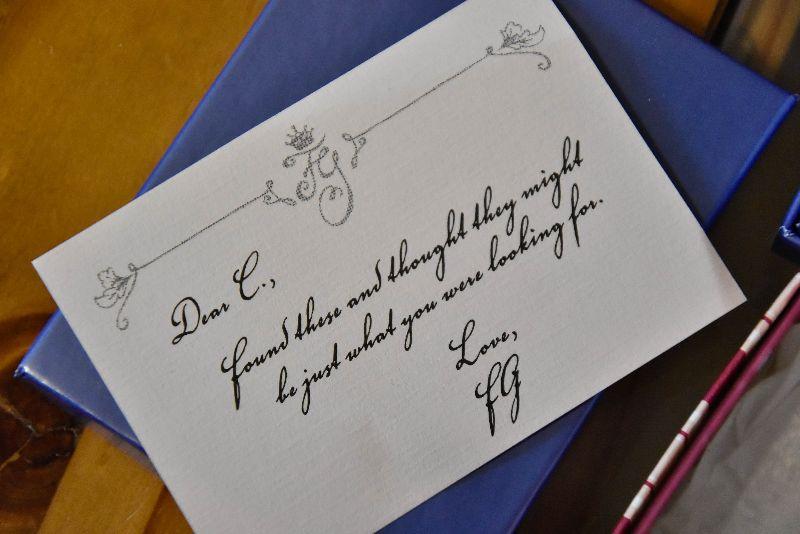 FG
Dear C.,
found these and thought they might
be just what you were looking for.
Love,
FG